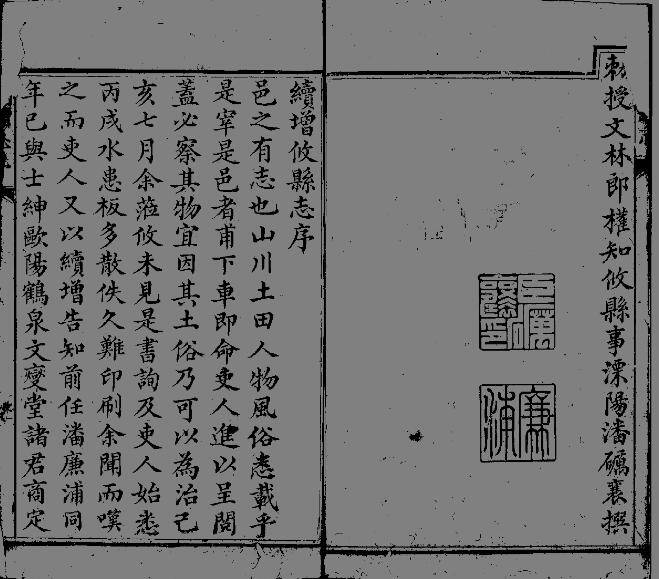 勅授文林郎權知攸縣事溧陽潘礪襄撰
廉浦
續增攸縣志序
邑之有志也山川土田人物風俗悉載乎
是宰是邑者甫下車即命吏人進以呈閱
蓋必察其物宜因其土俗乃可以為治己
亥七月余蒞攸未見是書詢及吏人始悉
丙戌水患板多散佚久難印刷余聞而嘆
之而吏人又以續增告知前任潘廉浦同
年已與士紳歐陽鶴泉文燮堂諸君商定